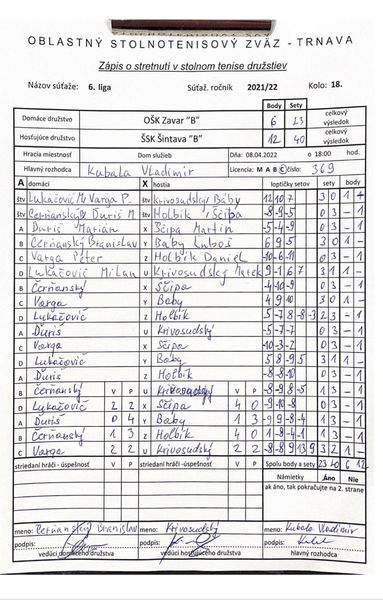 OBLASTNÝ STOLNOTENISOVÝ ZVÄZ - TRNAVA
Zápis o stretnutí v stolnom tenise družstiev
Názov súťaže: 6. liga Súťaž. ročník 2021/22 Kolo: 18.
Body Sety celkový výsledok
Domáce družstvo OŠK Zavar "B" 6 23
Hosťujúce družstvo ŠSK Šintava "B" 12 40 celkový výsledok
Hracia miestnosť Dom služieb Dňa: 08.04.2022 o 18:00 hod.
Hlavný rozhodca Kubala Vladimír Licencia: M A B C číslo: 369
A domáci X hostia loptičky setov sety body
štv Lukačovič M Varga P. štv Krivosudský Baby 12 10 7 3 0 1 +
štv Čerňanský Duriš M štv Holbík, Ščipa -8 -9 -5 0 3 - 1
A Duriš Marián X Ščipa Martin -5 -4 -9 0 3 - 1
B Čerňanský Branislav Y Baby Ľuboš 6 9 5 3 0 1 -
C Varga Peter Z Holbík Daniel -10 -6 -11 0 3 - 1
D Lukačovič Milan U Krivosudský Marek 9 -1 6 7 3 1 1 -
B Čerňanský X Ščipa -4 -10 -9 0 3 - 1
C Varga Y Baby 4 9 10 3 0 1 -
D Lukačovič Z Holbík 5 -7 8 -8 -3 2 3 - 1
A Ďuriš U Krivosudský -5 -7 -7 0 3 - 1
C Varga X Ščipa -10 -3 -2 0 3 - 1
D Lukačovič Y Baby 5 8 -9 5 3 1 1 -
A Ďuriš Z Holbík -8 -8 -10 0 3 - 1
B Čerňanský V P U Krivosudský V P -8 -9 8 -5 1 3 - 1
D Lukačovič 2 2 X Ščipa 4 0 -9 -10 -8 0 3 - 1
A Duriš 0 4 Y Baby 1 3 -9 9 -8 -4 1 3 - 1
B Čerňanský 1 3 Z Holbík 4 0 1 -8 -4 -1 1 3 - 1
C Varga 2 2 U Krivosudský 2 2 -8 -8 9 13 9 3 2 1 -
striedaní hráči - úspešnosť V P striedaní hráči - úspešnosť V P Spolu body a sety 23 40 6 12
Námietky Áno Nie
ak áno, tak pokračujte na 2. strane
meno: Čerňanský Branislav meno: Krivosudský meno: Kubala Vladimír
podpis: podpis: podpis:
vedúci domáceho družstva vedúci hosťujúceho družstva hlavný rozhodca